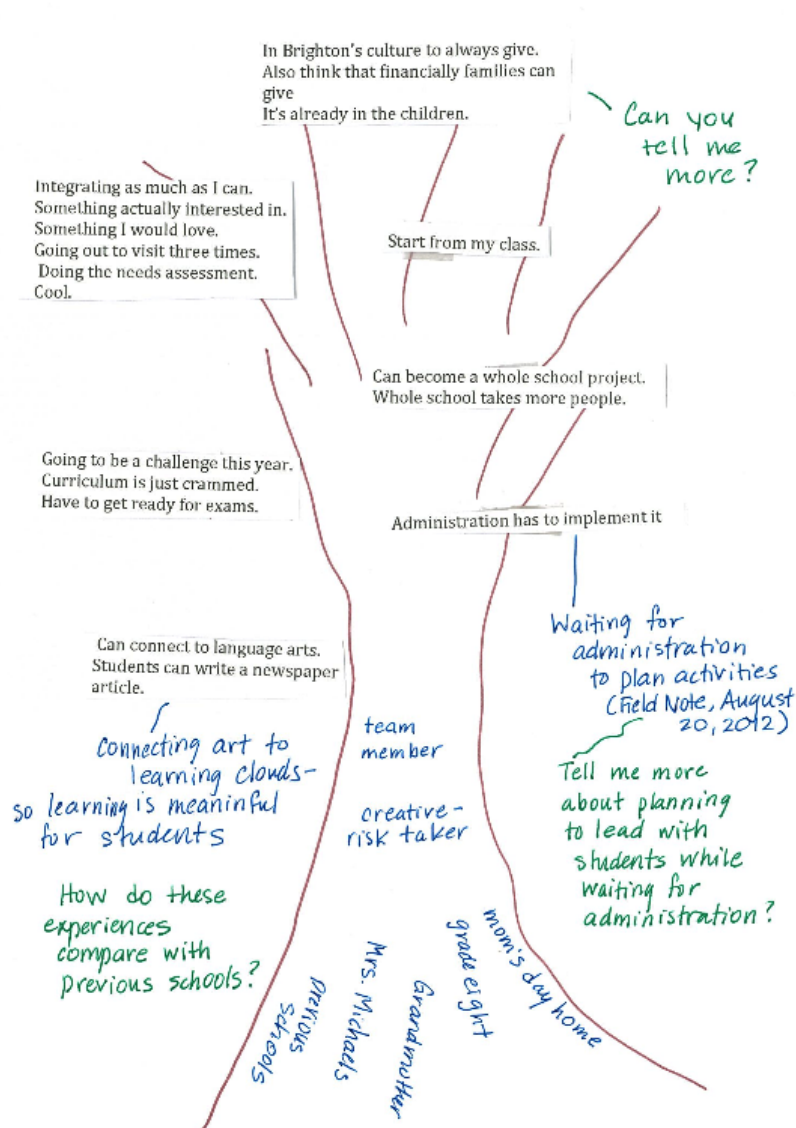 In Brighton's culture to always give.
Also think that financially families can
give
It's already in the children.
Can you
tell me
more?
Integrating as much as I can.
Something actually interested in.
Something I would love.
Going out to visit three times.
Doing the needs assessment.
Cool.
Start from my class.
Can become a whole school project.
Whole school takes more people.
Going to be a challenge this year.
Curriculum is just crammed.
Have to get ready for exams.
Administration has to implement it
Waiting for
administration
to plan activities
(Field Note, August
20, 2012)
Can connect to language arts.
Students can write a newspaper
article.
Connecting art to
learning clouds-
so learning is meaninful
for students
team
member
creative-
risk taker
Tell me more
about planning
to lead with
students while
waiting for
administration?
How do these
experiences
compare with
previous schools?
previous
schools
Mrs. Michaels
Grandmother
grade eight
mom's day home